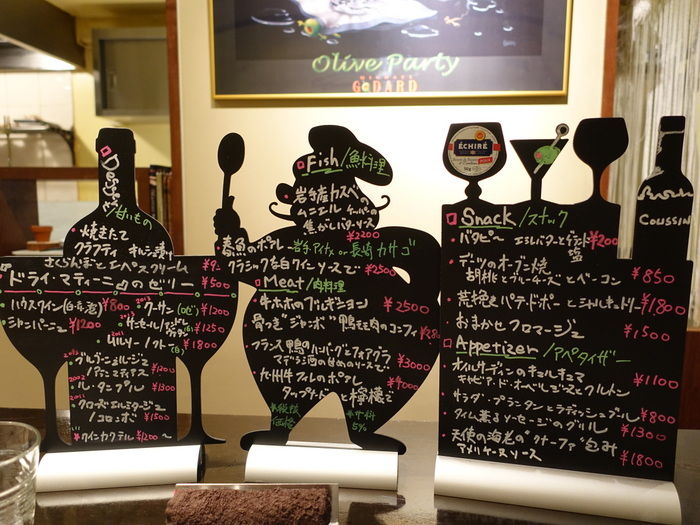 Olive Party
MICHAEL
GODARD
Dessert
/甘いもの
・焼きたて
クラフティ
さくらんぼとエペスクリーム
ドライ・マティーニのゼリー ¥500
ハウスワイン
¥800
・シャンパーニュ ¥1200
¥1200
¥1250
¥1800
2002
・ル・タンプル ¥1300
・クローズエルミタージュ
¥1500
カクテル ¥1200~
Fish/魚料理
岩手産カスベの
ムニエル ケーパーの
焦がしバターソース
¥2200
春魚のポワレ-岩手アイナメ or 長崎カサゴ
クラシックな白ワインソースで ¥2500
Meat/肉料理
・牛ホホのブルギニョン ¥2500
・骨つき"ジャンボ"鴨モモ肉のコンフィ
・フランス鴨のハンバーグとフォアグラ
マデラ酒の甘めのソースで ¥3000
・九州牛フィレのポワレ
タップナードと檸檬で ¥4000
※税抜
価格
※サ料
5%
ÉCHIRÉ
COUSSIN
Snack/スナック
・バタピー エシレバターとゲランド塩 ¥200
・デーツのオーブン焼
胡桃とブルーチーズとベーコン ¥850
・荒挽きパテ・ド・ポーとシャルキュトリー ¥1800
・おまかせフロマージュ ¥1500
Appetizer/アペタイザー
・オイルサーディンのキャルキュマ
キャビア・ド・オーベルジーヌとクルトン ¥1100
・サラダ・プランタンとラディッシュブール ¥800
・タイム薫るソーセージのグリル ¥1300
・天使の海老の"カターファ"包み
アメリケーヌソース ¥1800